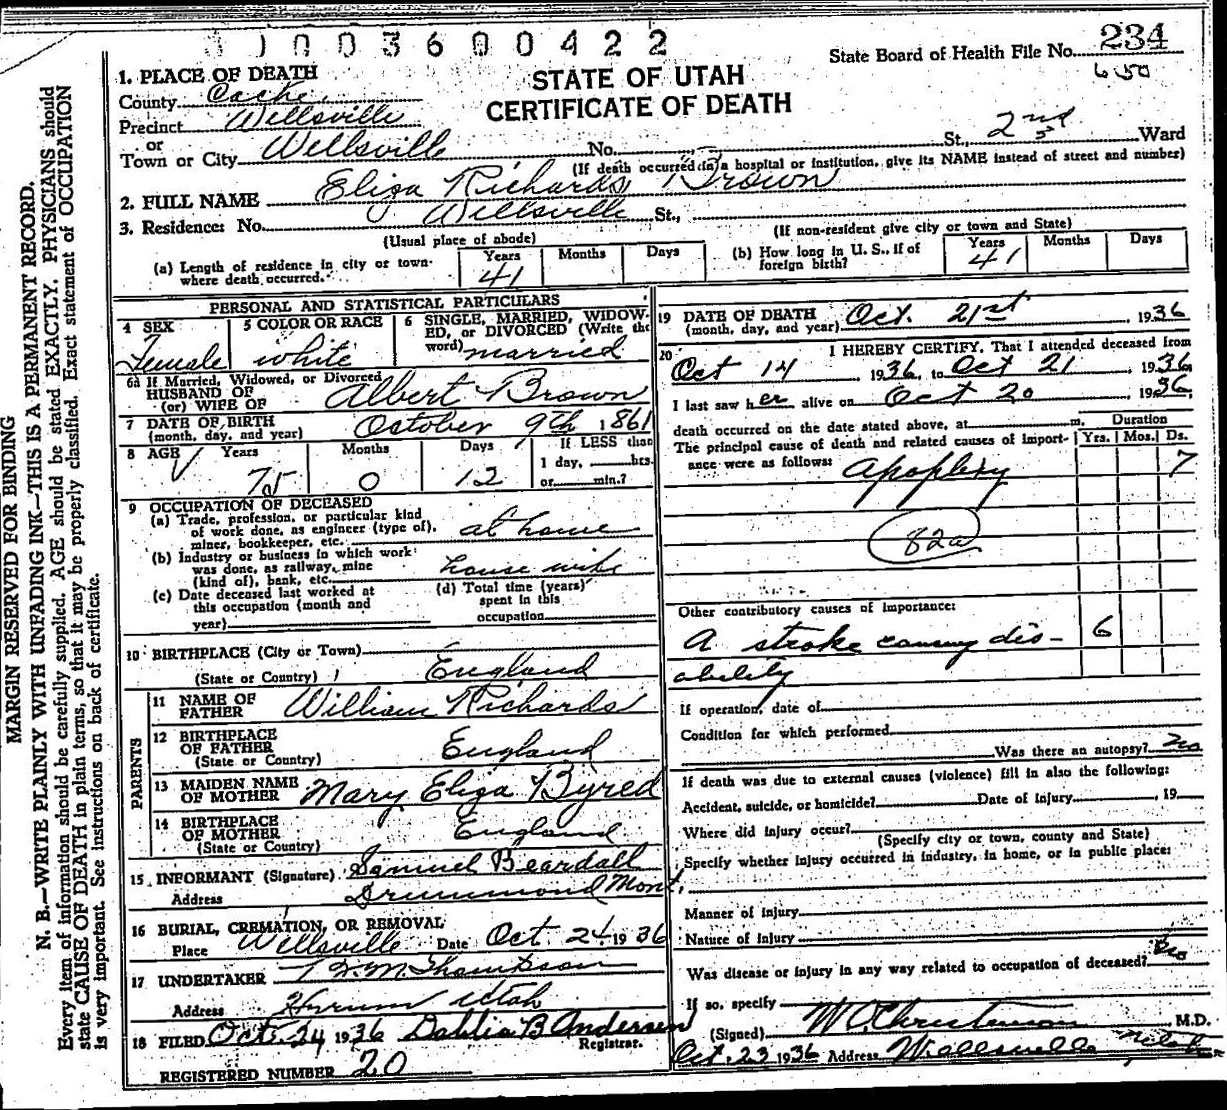 1003600422
State Board of Health File No. 234
650
STATE OF UTAH
CERTIFICATE OF DEATH
MARGIN RESERVED FOR BINDING
N. B.—WRITE PLAINLY WITH UNFADING INK—THIS IS A PERMANENT RECORD.
Every item of information should be carefully supplied. AGE should be stated EXACTLY. PHYSICIANS should
state CAUSE OF DEATH in plain terms, so that it may be properly classified. Exact statement of OCCUPATION
is very important. See instructions on back of certificate.
1. PLACE OF DEATH
County Cache
Precinct Wellsville
or
Town or City Wellsville No. St., 2nd Ward
(If death occurred in a hospital or institution, give its NAME instead of street and number)
2. FULL NAME Eliza Richards Brown
3. Residence: No. Wellsville St.,
(Usual place of abode) (If non-resident give city or town and State)
(a) Length of residence in city or town where death occurred. Years 41 Months Days
(b) How long in U. S., if of foreign birth? Years 41 Months Days
PERSONAL AND STATISTICAL PARTICULARS
4 SEX Female
5 COLOR OR RACE white
6 SINGLE, MARRIED, WIDOWED, or DIVORCED (Write the word) married
6a If Married, Widowed, or Divorced
HUSBAND OF
(or) WIFE OF Albert Brown
7 DATE OF BIRTH (month, day, and year) October 9th 1861
8 AGE Years 75 Months 0 Days 12 If LESS than 1 day, hrs. or min.?
9 OCCUPATION OF DECEASED
(a) Trade, profession, or particular kind of work done, as engineer (type of), miner, bookkeeper, etc. at home
(b) Industry or business in which work was done, as railway, mine (kind of), bank, etc. house wife
(c) Date deceased last worked at this occupation (month and year)
(d) Total time (years) spent in this occupation
10 BIRTHPLACE (City or Town)
(State or Country) England
PARENTS
11 NAME OF FATHER William Richards
12 BIRTHPLACE OF FATHER (State or Country) England
13 MAIDEN NAME OF MOTHER Mary Eliza Byred
14 BIRTHPLACE OF MOTHER (State or Country) England
15 INFORMANT (Signature) Samuel Beardall
Address Drummond Mont.
16 BURIAL, CREMATION, OR REMOVAL
Place Wellsville Date Oct. 24 1936
17 UNDERTAKER Thompson
Address Hyrum Utah
18 FILED Oct. 24 1936 Dahlia B Andersen
Registrar.
REGISTERED NUMBER 20
19 DATE OF DEATH (month, day, and year) Oct. 21st, 1936
20 I HEREBY CERTIFY, That I attended deceased from
Oct 14, 1936, to Oct 21, 1936
I last saw her alive on Oct 20 1936,
death occurred on the date stated above, at m.
The principal cause of death and related causes of importance were as follows: Duration Yrs. Mos. Ds.
apoplexy 7
82a
Other contributory causes of importance:
A stroke causing dis- 6
ability
If operation, date of
Condition for which performed
Was there an autopsy? no
If death was due to external causes (violence) fill in also the following:
Accident, suicide, or homicide? Date of injury , 19
Where did injury occur?
(Specify city or town, county and State)
Specify whether injury occurred in industry, in home, or in public place:
Manner of injury
Nature of injury
Was disease or injury in any way related to occupation of deceased? no
If so, specify
(Signed) W C Christensen M.D.
Oct. 23 1936 Address Wellsville Utah